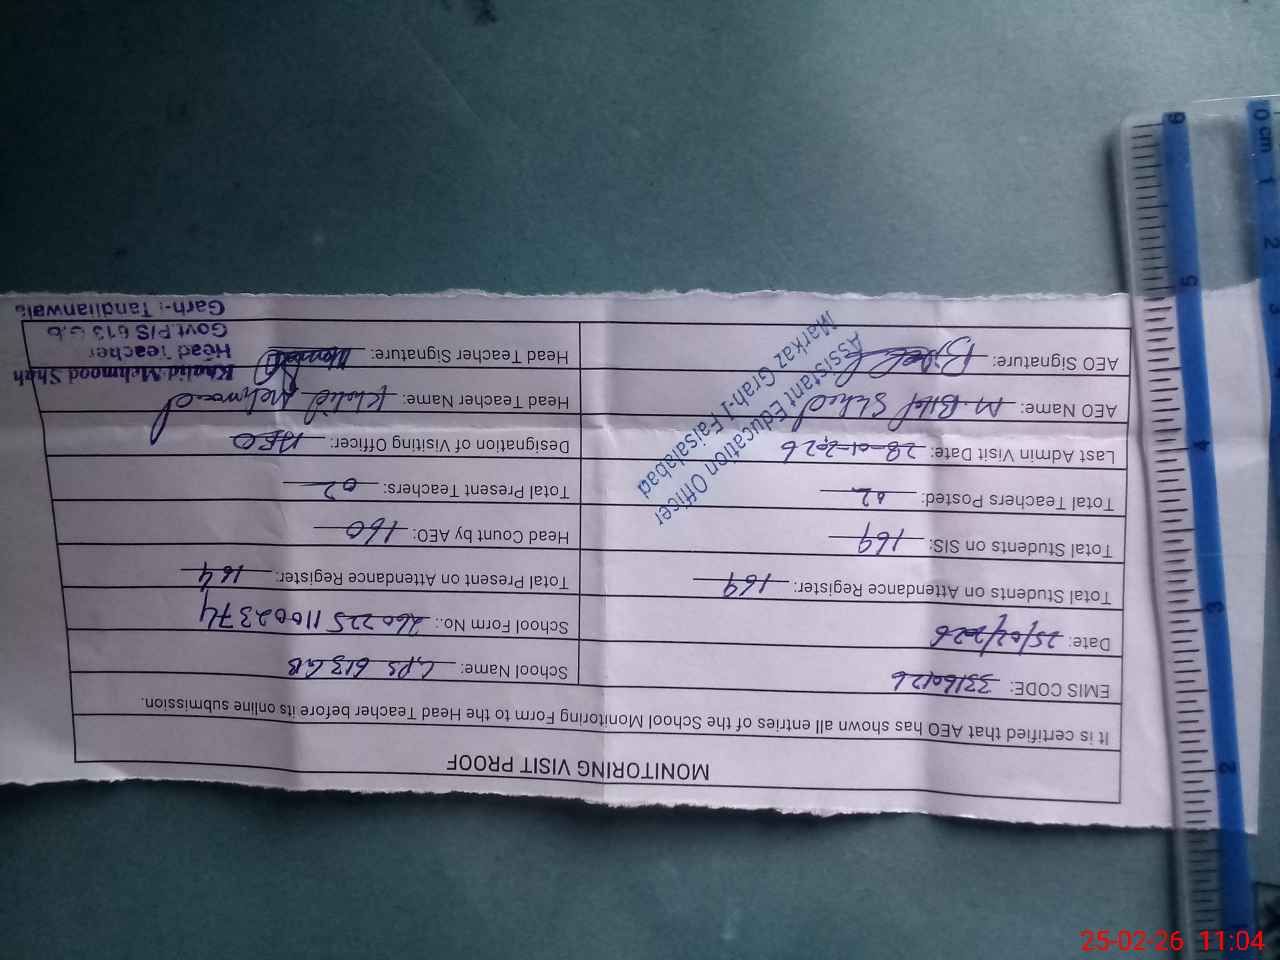 MONITORING VISIT PROOF
It is certified that AEO has shown all entries of the School Monitoring Form to the Head Teacher before its online submission.
EMIS CODE: 33160126 School Name: GPS 613 GB
Date: 25/02/2026 School Form No.: 260225 11002374
Total Students on Attendance Register: 169 Total Present on Attendance Register: 164
Total Students on SIS: 169 Head Count by AEO: 160
Total Teachers Posted: 02 Total Present Teachers: 02
Last Admin Visit Date: 28-01-2026 Designation of Visiting Officer: AEO
AEO Name: M. Bilal Head Teacher Name: Khalid Mehmood
AEO Signature: Head Teacher Signature:
Assistant Education Officer
Markaz Grah-I Faisalabad
Khalid Mehmood Shah
Head Teacher
Govt P/S 613 G.b
Garh-I Tandlianwala
6
5
4
3
2
0 cm
1
2
3
25-02-26 11:04